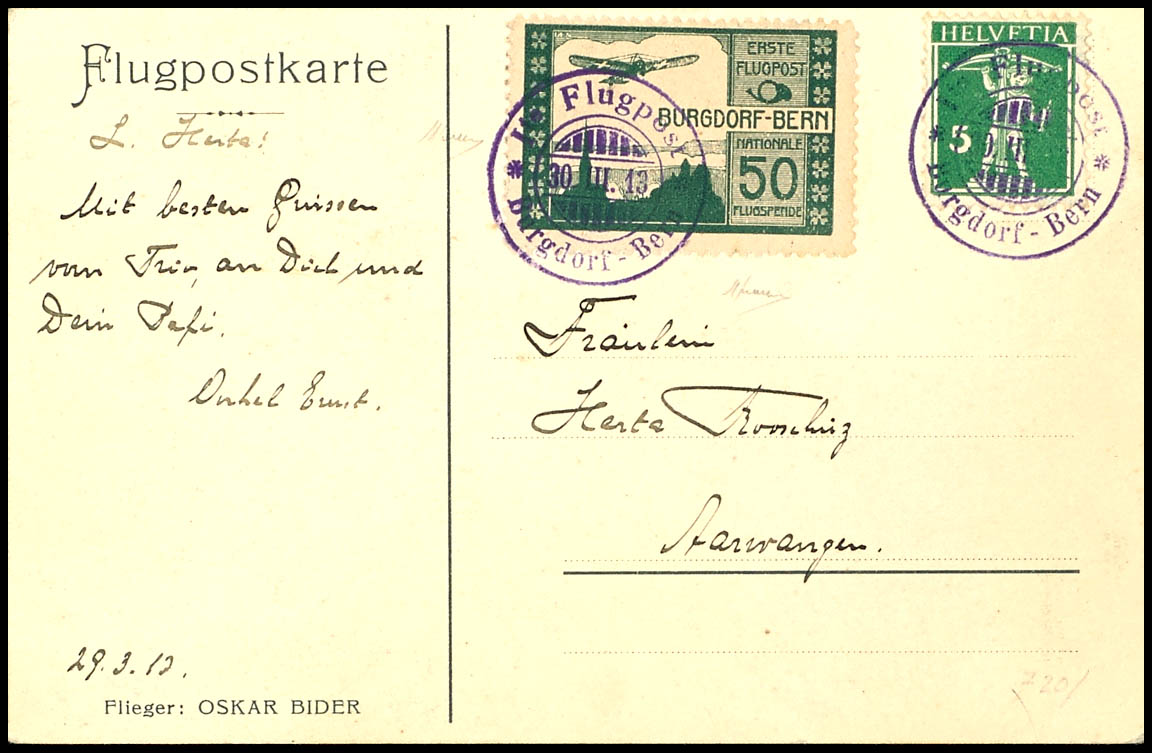 Flugpostkarte
L. Herta!
Mit besten Grüssen
vom Trio, an Dich und
Dein Papi.
Onkel Ernst.
29.3.13.
Flieger: OSKAR BIDER
ERSTE
FLUGPOST
BURGDORF-BERN
NATIONALE
50
FLUGSPENDE
Flugpost
30. III. 13
Burgdorf-Bern
HELVETIA
5
Flugpost
Burgdorf-Bern
Fräulein
Herta
Aarwangen.